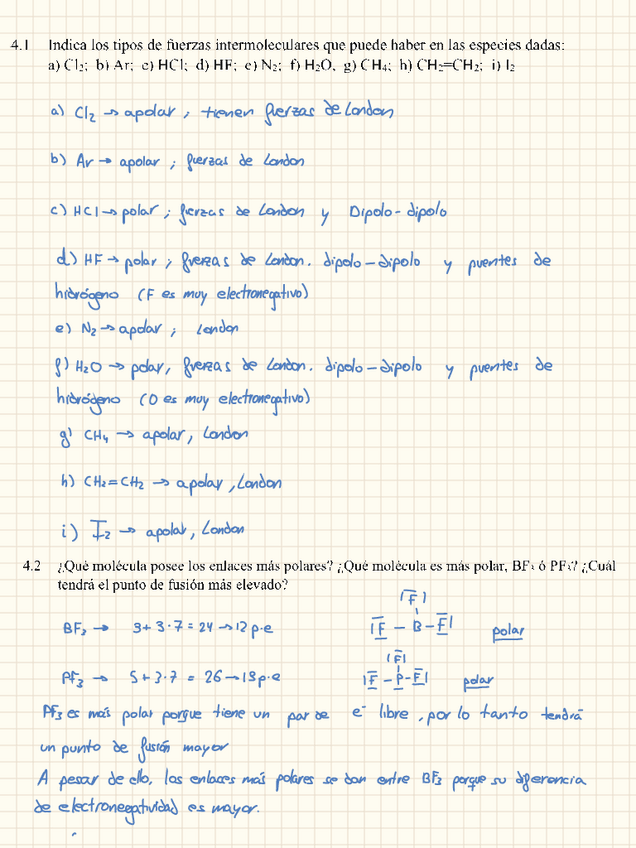 4.1 Indica los tipos de fuerzas intermoleculares que puede haber en las especies dadas:
a) Cl₂; b) Ar; c) HCl; d) HF; e) N₂; f) H₂O, g) CH₄; h) CH₂=CH₂; i) I₂
a) Cl₂ → apolar, tienen fuerzas de London
b) Ar → apolar; fuerzas de London
c) HCl → polar; fuerzas de London y Dipolo-dipolo
d) HF → polar; fuerzas de London. dipolo-dipolo y puentes de
hidrógeno (F es muy electronegativo)
e) N₂ → apolar; London
f) H₂O → polar, fuerzas de London. dipolo-dipolo y puentes de
hidrógeno (O es muy electronegativo)
g) CH₄ → apolar, London
h) CH₂=CH₂ → apolar, London
i) I₂ → apolar, London
4.2 ¿Qué molécula posee los enlaces más polares? ¿Qué molécula es más polar, BF₃ ó PF₃? ¿Cuál
tendrá el punto de fusión más elevado?
|F|
BF₃ → 3+3·7 = 24 → 12 p.e |F - B - F| polar
|F|
PF₃ → 5+3·7 = 26 → 13 p.e |F - P - F| polar
PF₃ es más polar porque tiene un par de e⁻ libre, por lo tanto tendrá
un punto de fusión mayor
A pesar de ello, los enlaces más polares se dan entre BF₃ porque su diferencia
de electronegatividad es mayor.